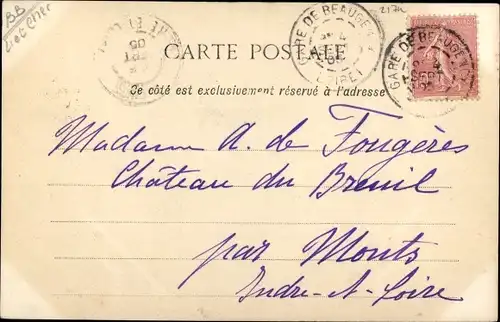 BB
Loir et Cher
CARTE POSTALE
GARE DE BEAUGENCY
(LOIRET)
GARE DE BEAUGENCY
SEPT
Ce côté est exclusivement réservé à l'adresse
Madame A. de Fougères
Château du Breuil
par Monts
Indre-et-Loire